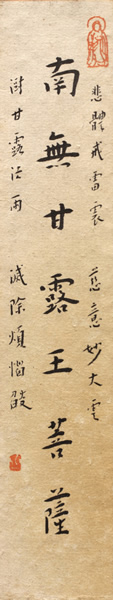 悲體戒雷震 慈意妙大雲
南無甘露王菩薩
澍甘露法雨 滅除煩惱燄